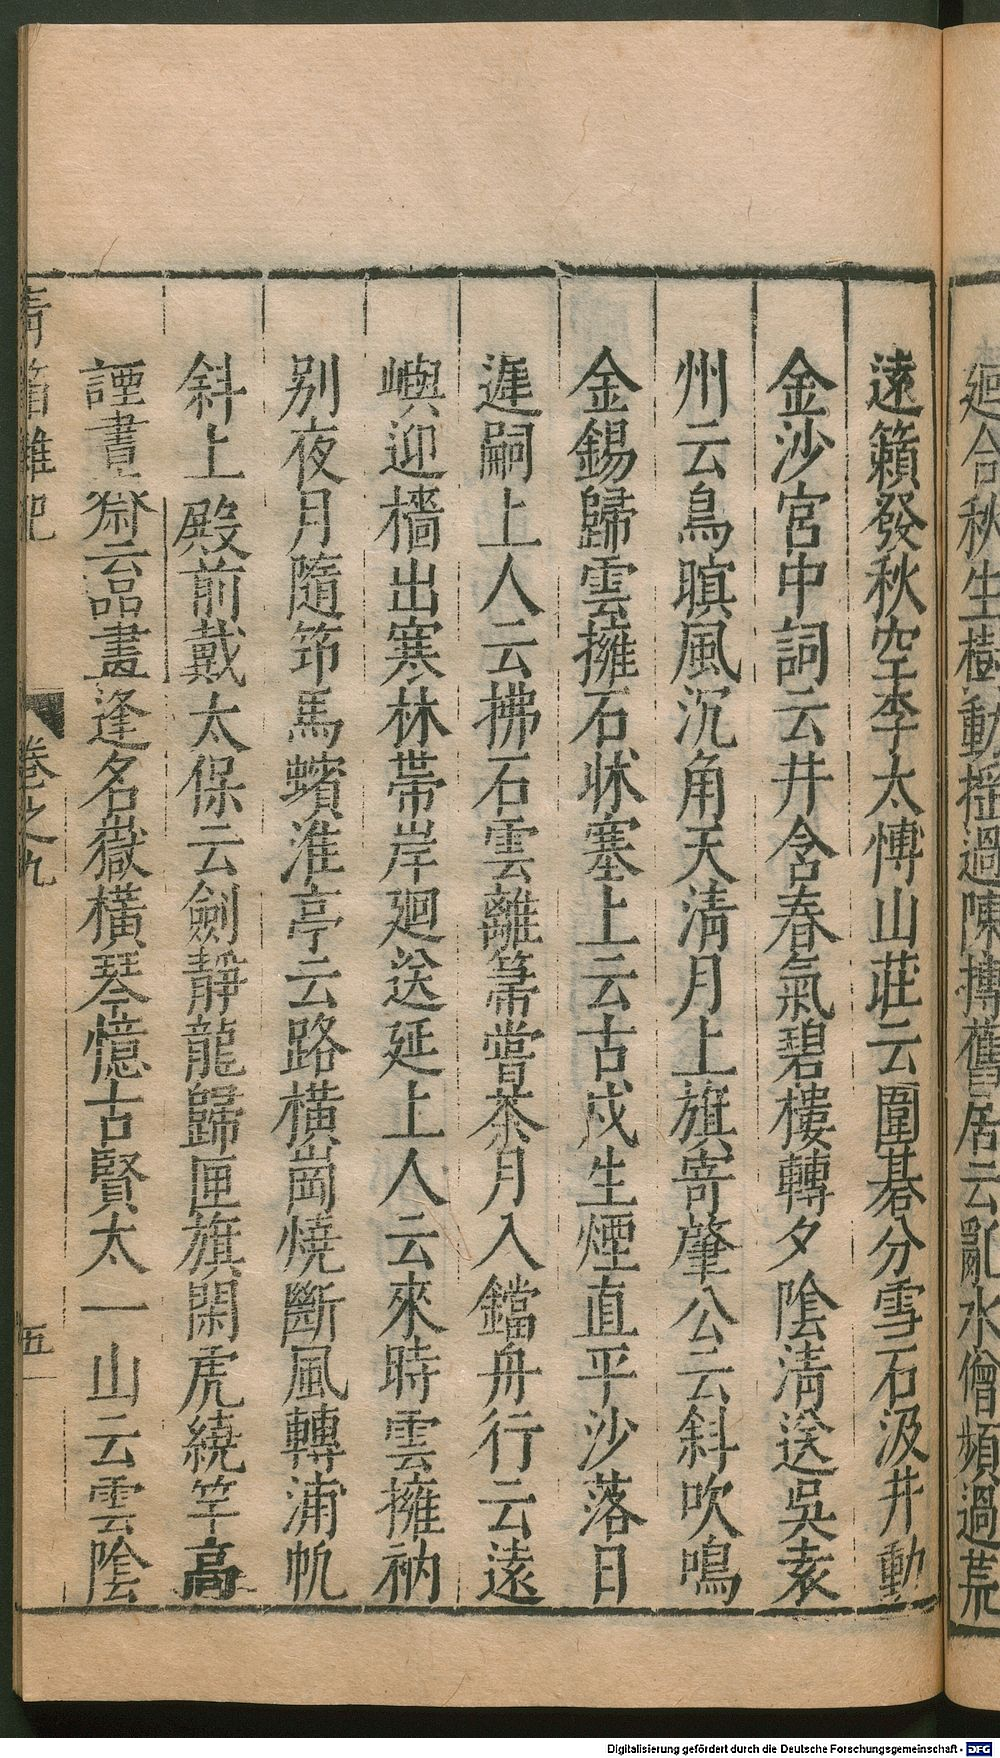 廻合秋生樹動搖過陳摶舊居云亂水僧頻過荒
遠籟發秋空李太愽山莊云圍碁分雪石汲井動
金沙宮中詞云井含春氣碧樓轉夕陰清送吳袁
州云鳥暝風沉角天清月上旗寄肇公云斜吹鳴
金錫歸雲擁石牀塞上云古戍生煙直平沙落日
遲嗣上人云拂石雲離箒嘗茶月入鐺舟行云遠
嶼迎檣出寒林帶岸廻送延上人云來時雲擁衲
别夜月隨笻馬蠙淮亭云路橫崗燒斷風轉浦帆
斜上殿前戴太保云劍靜龍歸匣旗閑虎繞竿高
諲晝嶽云品畫逢名嶽橫琴憶古賢太一山云雲陰
青箱雜記
卷之九
五
Digitalisierung gefördert durch die Deutsche Forschungsgemeinschaft - DFG